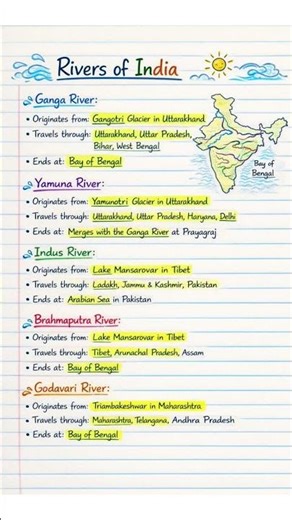 Rivers of India
Ganga River:
• Originates from: Gangotri Glacier in Uttarakhand
• Travels through: Uttarakhand, Uttar Pradesh,
Bihar, West Bengal
• Ends at: Bay of Bengal
Bay of
Bengal
Yamuna River:
• Originates from: Yamunotri Glacier in Uttarakhand
• Travels through: Uttarakhand, Uttar Pradesh, Haryana, Delhi
• Ends at: Merges with the Ganga River at Prayagraj
Indus River:
• Originates from: Lake Mansarovar in Tibet
• Travels through: Ladakh, Jammu & Kashmir, Pakistan
• Ends at: Arabian Sea in Pakistan
Brahmaputra River:
• Originates from: Lake Mansarovar in Tibet
• Travels through: Tibet, Arunachal Pradesh, Assam
• Ends at: Bay of Bengal
Godavari River:
• Originates from: Triambakeshwar in Maharashtra
• Travels through: Maharashtra, Telangana, Andhra Pradesh
• Ends at: Bay of Bengal